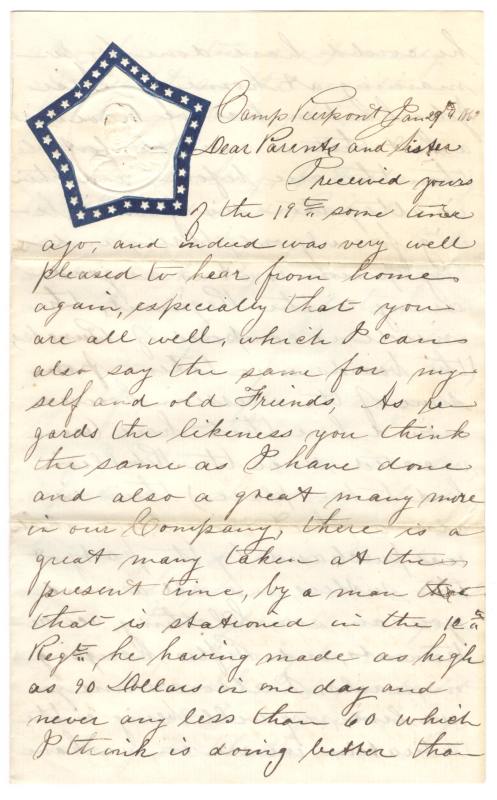 Camp Pierpont Jan 29th 1862
Dear Parents and Sister
I received yours
of the 19th some time
ago, and indeed was very well
pleased to hear from home
again, especially that you
are all well, which I can
also say the same for my
self and old Friends, As re
gards the likeness you think
the same as I have done
and also a great many more
in our Company, there is a
great many taken at the
present time, by a man
that is stationed in the 10th
Regt, he having made as high
as 90 Dollars in one day and
never any less than 60 which
I think is doing better than